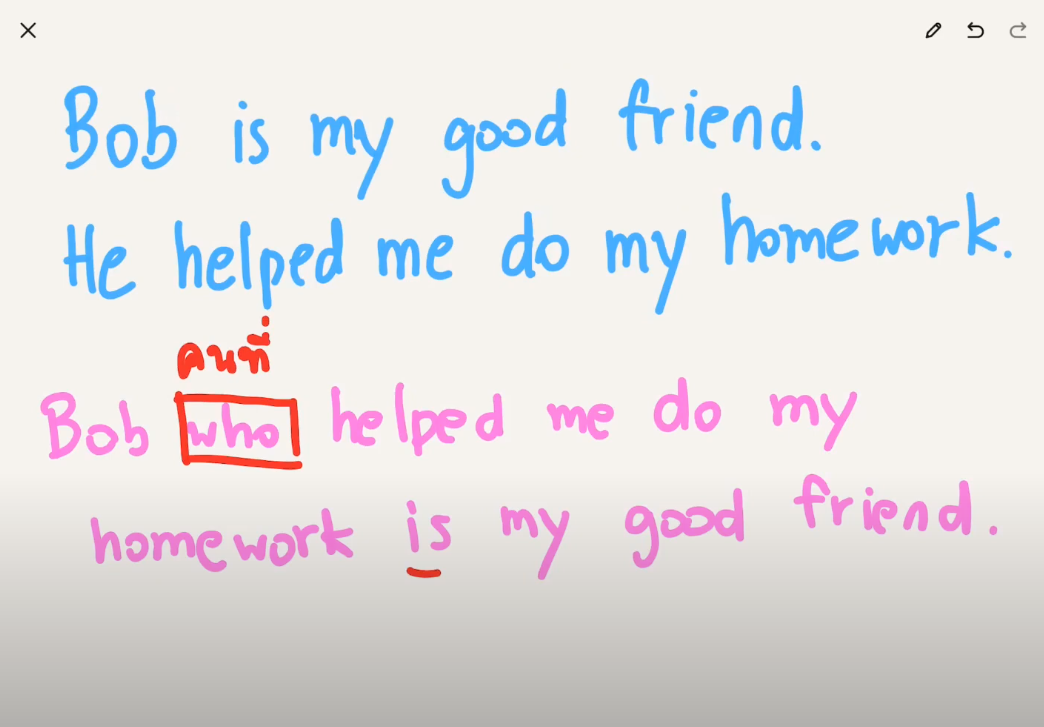 Bob is my good friend.
He helped me do my homework.
คนที่
Bob who helped me do my
homework is my good friend.